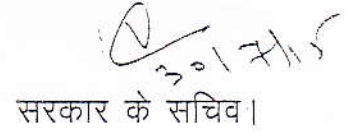 30/7/15
सरकार के सचिव।